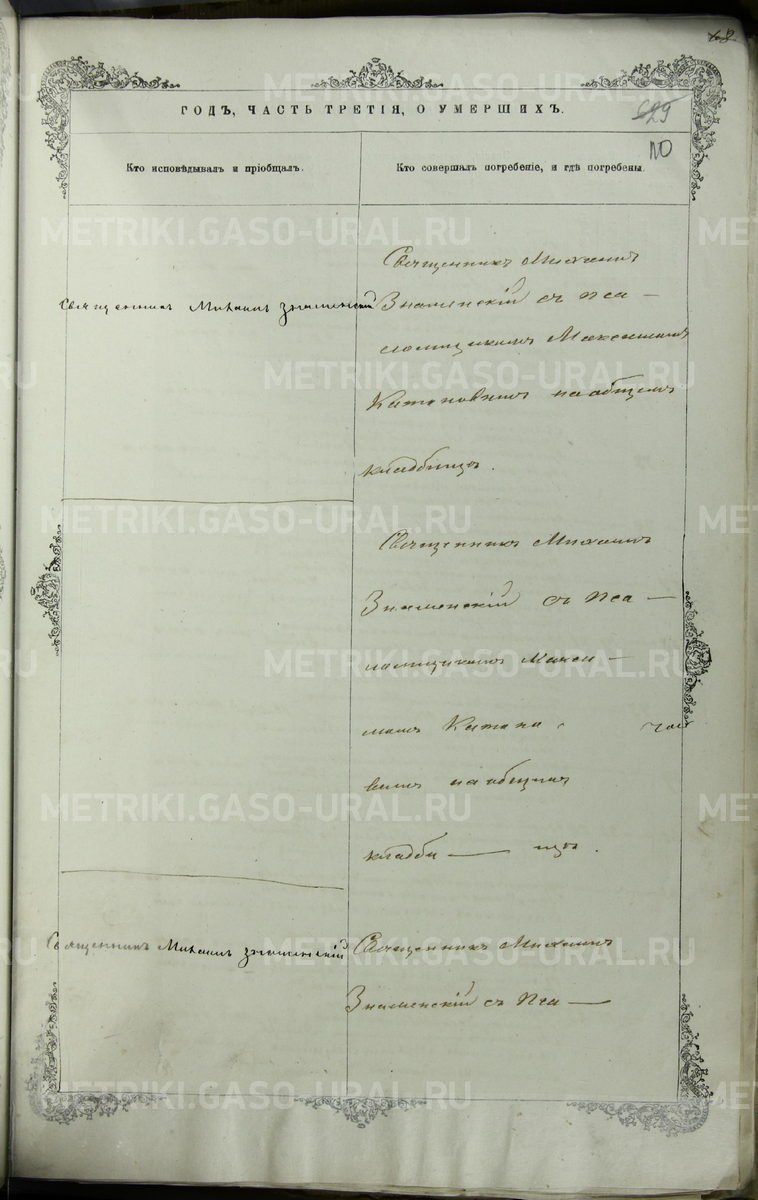 68.
ГОДЪ, ЧАСТЬ ТРЕТІЯ, О УМЕРШИХЪ.
629
110
Кто исповѣдывалъ и пріобщалъ.
Кто совершалъ погребеніе, и гдѣ погребены.
Священникъ Михаилъ Знаменскій
Священникъ Михаилъ
Знаменскій съ пса—
ломщикомъ Максимомъ
Катановымъ на общемъ
кладбищѣ.
Священникъ Михаилъ
Знаменскій съ Пса—
ломщикомъ Макси—
момъ Катано
вымъ на общемъ
кладби— щѣ.
Священникъ Михаилъ Знаменскій
Священникъ Михаилъ
Знаменскій съ Пса—
METRIKI.GASO-URAL.RU